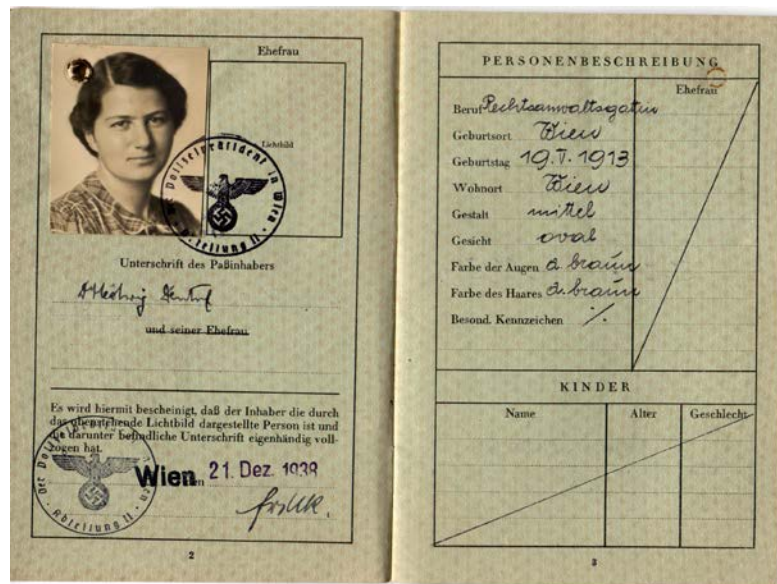 Ehefrau
Lichtbild
Der Polizeipräsident in Wien
Abteilung II
Unterschrift des Paßinhabers
und seiner Ehefrau
Es wird hiermit bescheinigt, daß der Inhaber die durch
das obenstehende Lichtbild dargestellte Person ist und
die darunter befindliche Unterschrift eigenhändig voll-
zogen hat.
Der Polizeipräsident in Wien
Abteilung II
Wien 21. Dez. 1938
2
PERSONENBESCHREIBUNG
Ehefrau
Beruf Rechtsanwaltsgattin
Geburtsort Wien
Geburtstag 19.V.1913
Wohnort Wien
Gestalt mittel
Gesicht oval
Farbe der Augen d. braun
Farbe des Haares d. braun
Besond. Kennzeichen ./.
KINDER
Name Alter Geschlecht
3